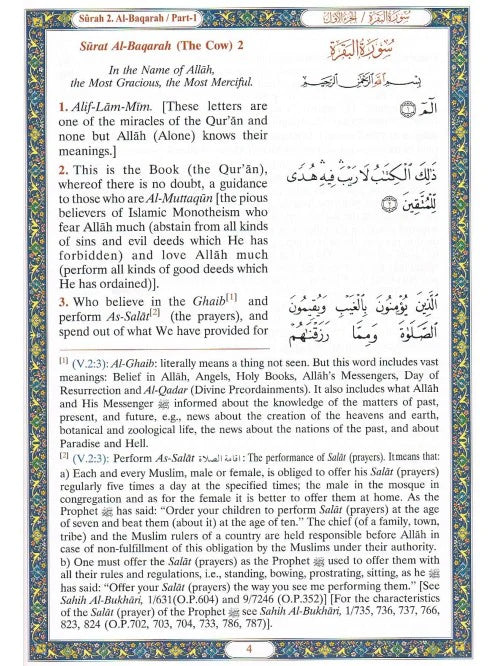 Sûrah 2. Al-Baqarah / Part-1
سُورَةُ البَقَرَة ٢ / الجُزءُ الأوّل
Sûrat Al-Baqarah (The Cow) 2
سُورَةُ الْبَقَرَةِ
In the Name of Allâh,
the Most Gracious, the Most Merciful.
بِسْمِ اللَّهِ الرَّحْمَٰنِ الرَّحِيمِ
1. Alif-Lâm-Mîm. [These letters are
one of the miracles of the Qur'ân and
none but Allâh (Alone) knows their
meanings.]
الٓمٓ ١
2. This is the Book (the Qur'ân),
whereof there is no doubt, a guidance
to those who are Al-Muttaqûn [the pious
believers of Islamic Monotheism who
fear Allâh much (abstain from all kinds
of sins and evil deeds which He has
forbidden) and love Allâh much
(perform all kinds of good deeds which
He has ordained)].
ذَٰلِكَ الْكِتَٰبُ لَا رَيْبَ ۛ فِيهِ ۛ هُدًى
لِّلْمُتَّقِينَ ٢
3. Who believe in the Ghaib[1] and
perform As-Salât[2] (the prayers), and
spend out of what We have provided for
الَّذِينَ يُؤْمِنُونَ بِالْغَيْبِ وَيُقِيمُونَ
الصَّلَوٰةَ وَمِمَّا رَزَقْنَٰهُمْ
[1] (V.2:3): Al-Ghaib: literally means a thing not seen. But this word includes vast
meanings: Belief in Allâh, Angels, Holy Books, Allâh's Messengers, Day of
Resurrection and Al-Qadar (Divine Preordainments). It also includes what Allâh
and His Messenger ﷺ informed about the knowledge of the matters of past,
present, and future, e.g., news about the creation of the heavens and earth,
botanical and zoological life, the news about the nations of the past, and about
Paradise and Hell.
[2] (V.2:3): Perform As-Salât إقامة الصلاة : The performance of Salât (prayers). It means that:
a) Each and every Muslim, male or female, is obliged to offer his Salât (prayers)
regularly five times a day at the specified times; the male in the mosque in
congregation and as for the female it is better to offer them at home. As the
Prophet ﷺ has said: "Order your children to perform Salât (prayers) at the age
of seven and beat them (about it) at the age of ten." The chief (of a family, town,
tribe) and the Muslim rulers of a country are held responsible before Allâh in
case of non-fulfillment of this obligation by the Muslims under their authority.
b) One must offer the Salât (prayers) as the Prophet ﷺ used to offer them with
all their rules and regulations, i.e., standing, bowing, prostrating, sitting, as he ﷺ
has said: "Offer your Salât (prayers) the way you see me performing them." [See
Sahih Al-Bukhâri, 1/631(O.P.604) and 9/7246 (O.P.352)] [For the characteristics
of the Salât (prayer) of the Prophet ﷺ see Sahih Al-Bukhâri, 1/735, 736, 737, 766,
823, 824 (O.P.702, 703, 704, 733, 786, 787)].
4